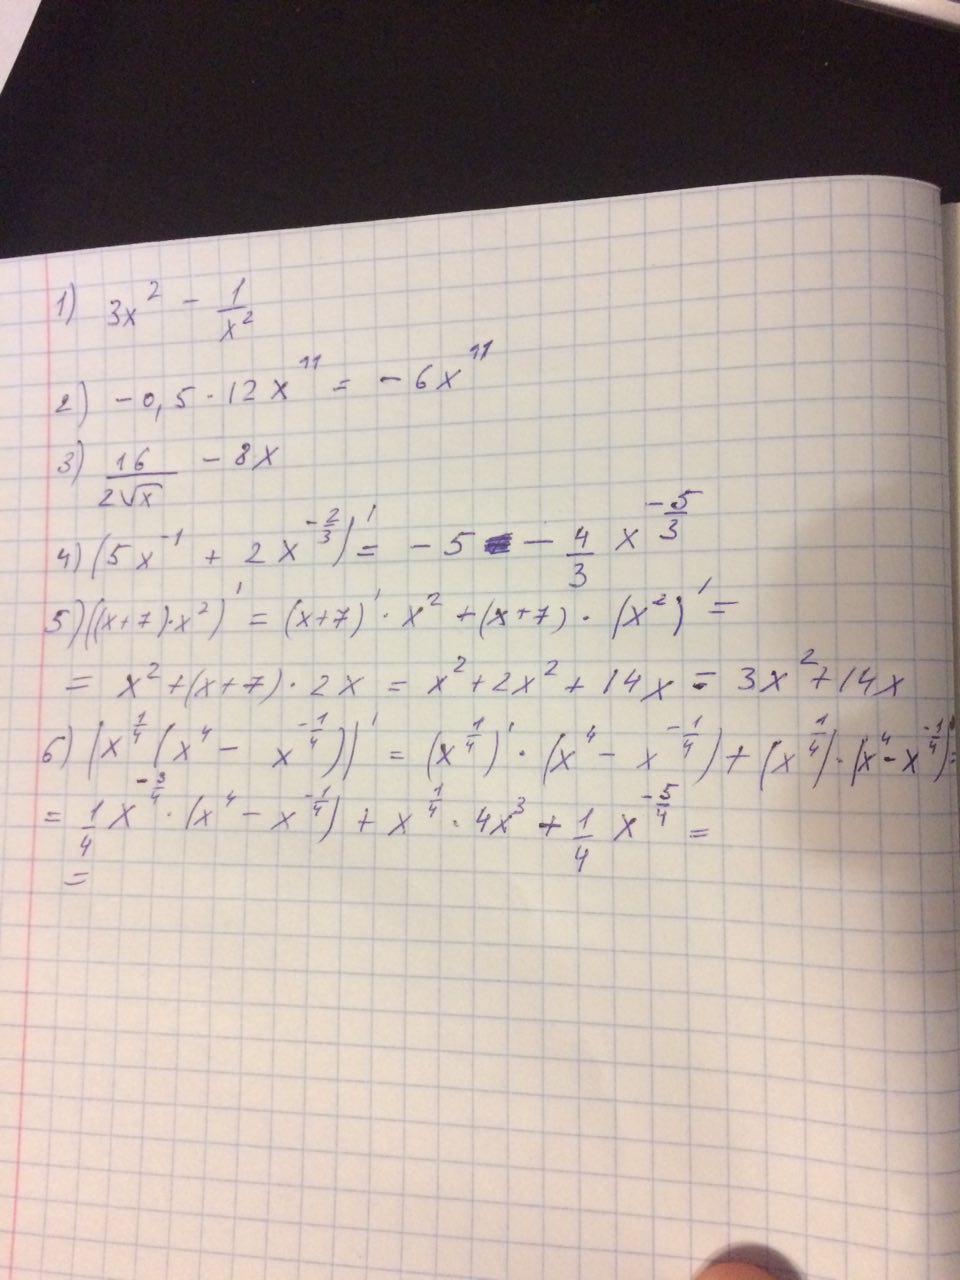 1) 3x² - 1/x²
2) -0,5 · 12x¹¹ = -6x¹¹
3) 16/(2√x) - 8x
4) (5x^(-1) + 2x^(-2/3))' = -5 - 4/3 x^(-5/3)
5) ((x+7)·x²)' = (x+7)' · x² + (x+7) · (x²)' =
= x² + (x+7) · 2x = x² + 2x² + 14x = 3x² + 14x
6) (x^(1/4) (x⁴ - x^(-1/4)))' = (x^(1/4))' · (x⁴ - x^(-1/4)) + (x^(1/4)) · (x⁴ - x^(-1/4))' =
= 1/4 x^(-3/4) · (x⁴ - x^(-1/4)) + x^(1/4) · 4x³ + 1/4 x^(-5/4) =
=